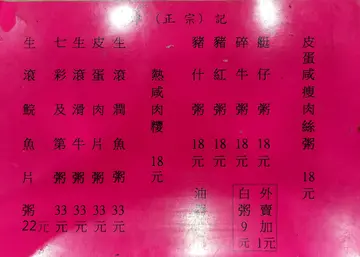 （正宗）記
皮蛋咸瘦肉絲粥 18元
艇仔粥 18元
碎牛粥 18元
豬紅粥 18元
豬什粥 18元
熟咸肉糭 18元
生滾潤魚粥 33元
皮蛋肉片粥 33元
生滾滑牛粥 33元
七彩及第粥 33元
生滾鯇魚片粥 22元
外賣加1元
白粥9元
油